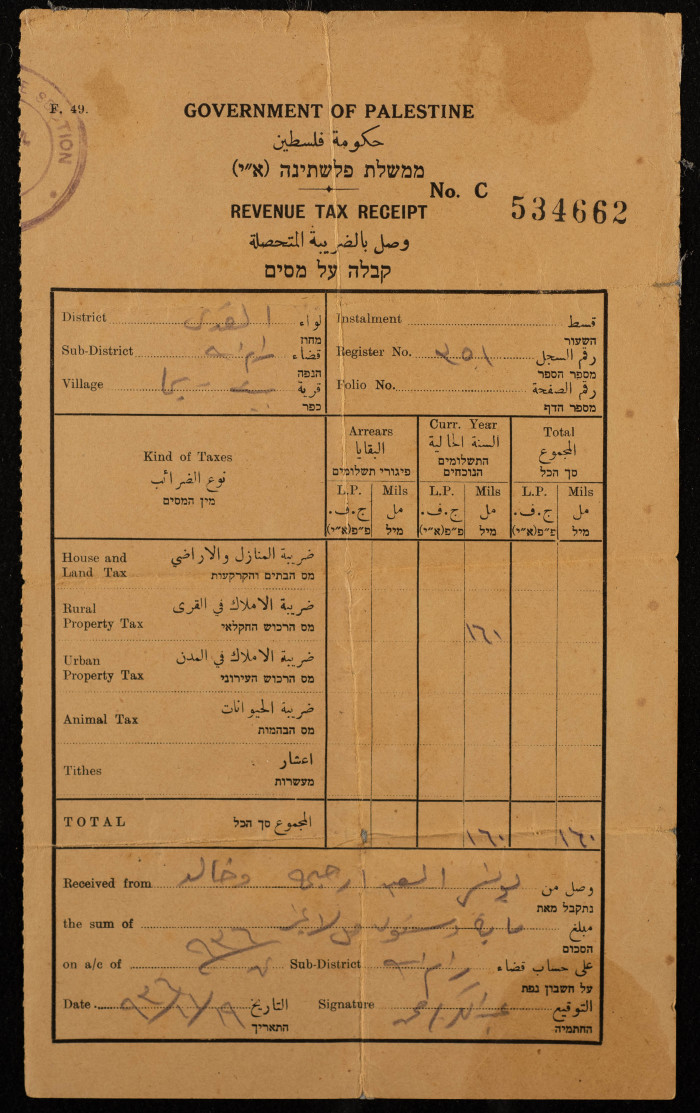 F. 49.
GOVERNMENT OF PALESTINE
حكومة فلسطين
ממשלת פלשתינה (א״י)
No. C 534662
REVENUE TAX RECEIPT
وصل بالضريبة المتحصلة
קבלה על מסים
District القدس لواء
מחוז
Sub-District رام الله قضاء
הנפה
Village بيت ريما قرية
כפר
Instalment قسط
השעור
Register No. ٣٥١ رقم السجل
מספר הספר
Folio No. رقم الصفحة
מספר הדף
Kind of Taxes
نوع الضرائب
מין המסים
Arrears
البقايا
פיגורי תשלומים
Curr. Year
السنة الحالية
התשלומים
הנוכחים
Total
المجموع
סך הכל
L.P. Mils L.P. Mils L.P. Mils
ج.ف. مل ج.ف. مل ج.ف. مل
פ״פ(א״י) מיל פ״פ(א״י) מיל פ״פ(א״י) מיל
House and
Land Tax
ضريبة المنازل والاراضي
מס הבתים והקרקעות
Rural
Property Tax
ضريبة الاملاك في القرى
מס הרכוש החקלאי
١٦٠
Urban
Property Tax
ضريبة الاملاك في المدن
מס הרכוש העירוני
Animal Tax
ضريبة الحيوانات
מס הבהמות
Tithes
اعشار
מעשרות
TOTAL المجموع סך הכל ١٦٠ ١٦٠
Received from وخالد وصل من
נתקבל מאת
the sum of ماية وستون مل لا غير مبلغ
הסכום
on a/c of ٩٣٦ Sub-District رام الله على حساب قضاء
על חשבון נפת
Date التاريخ
התאריך
Signature التوقيع
החתימה